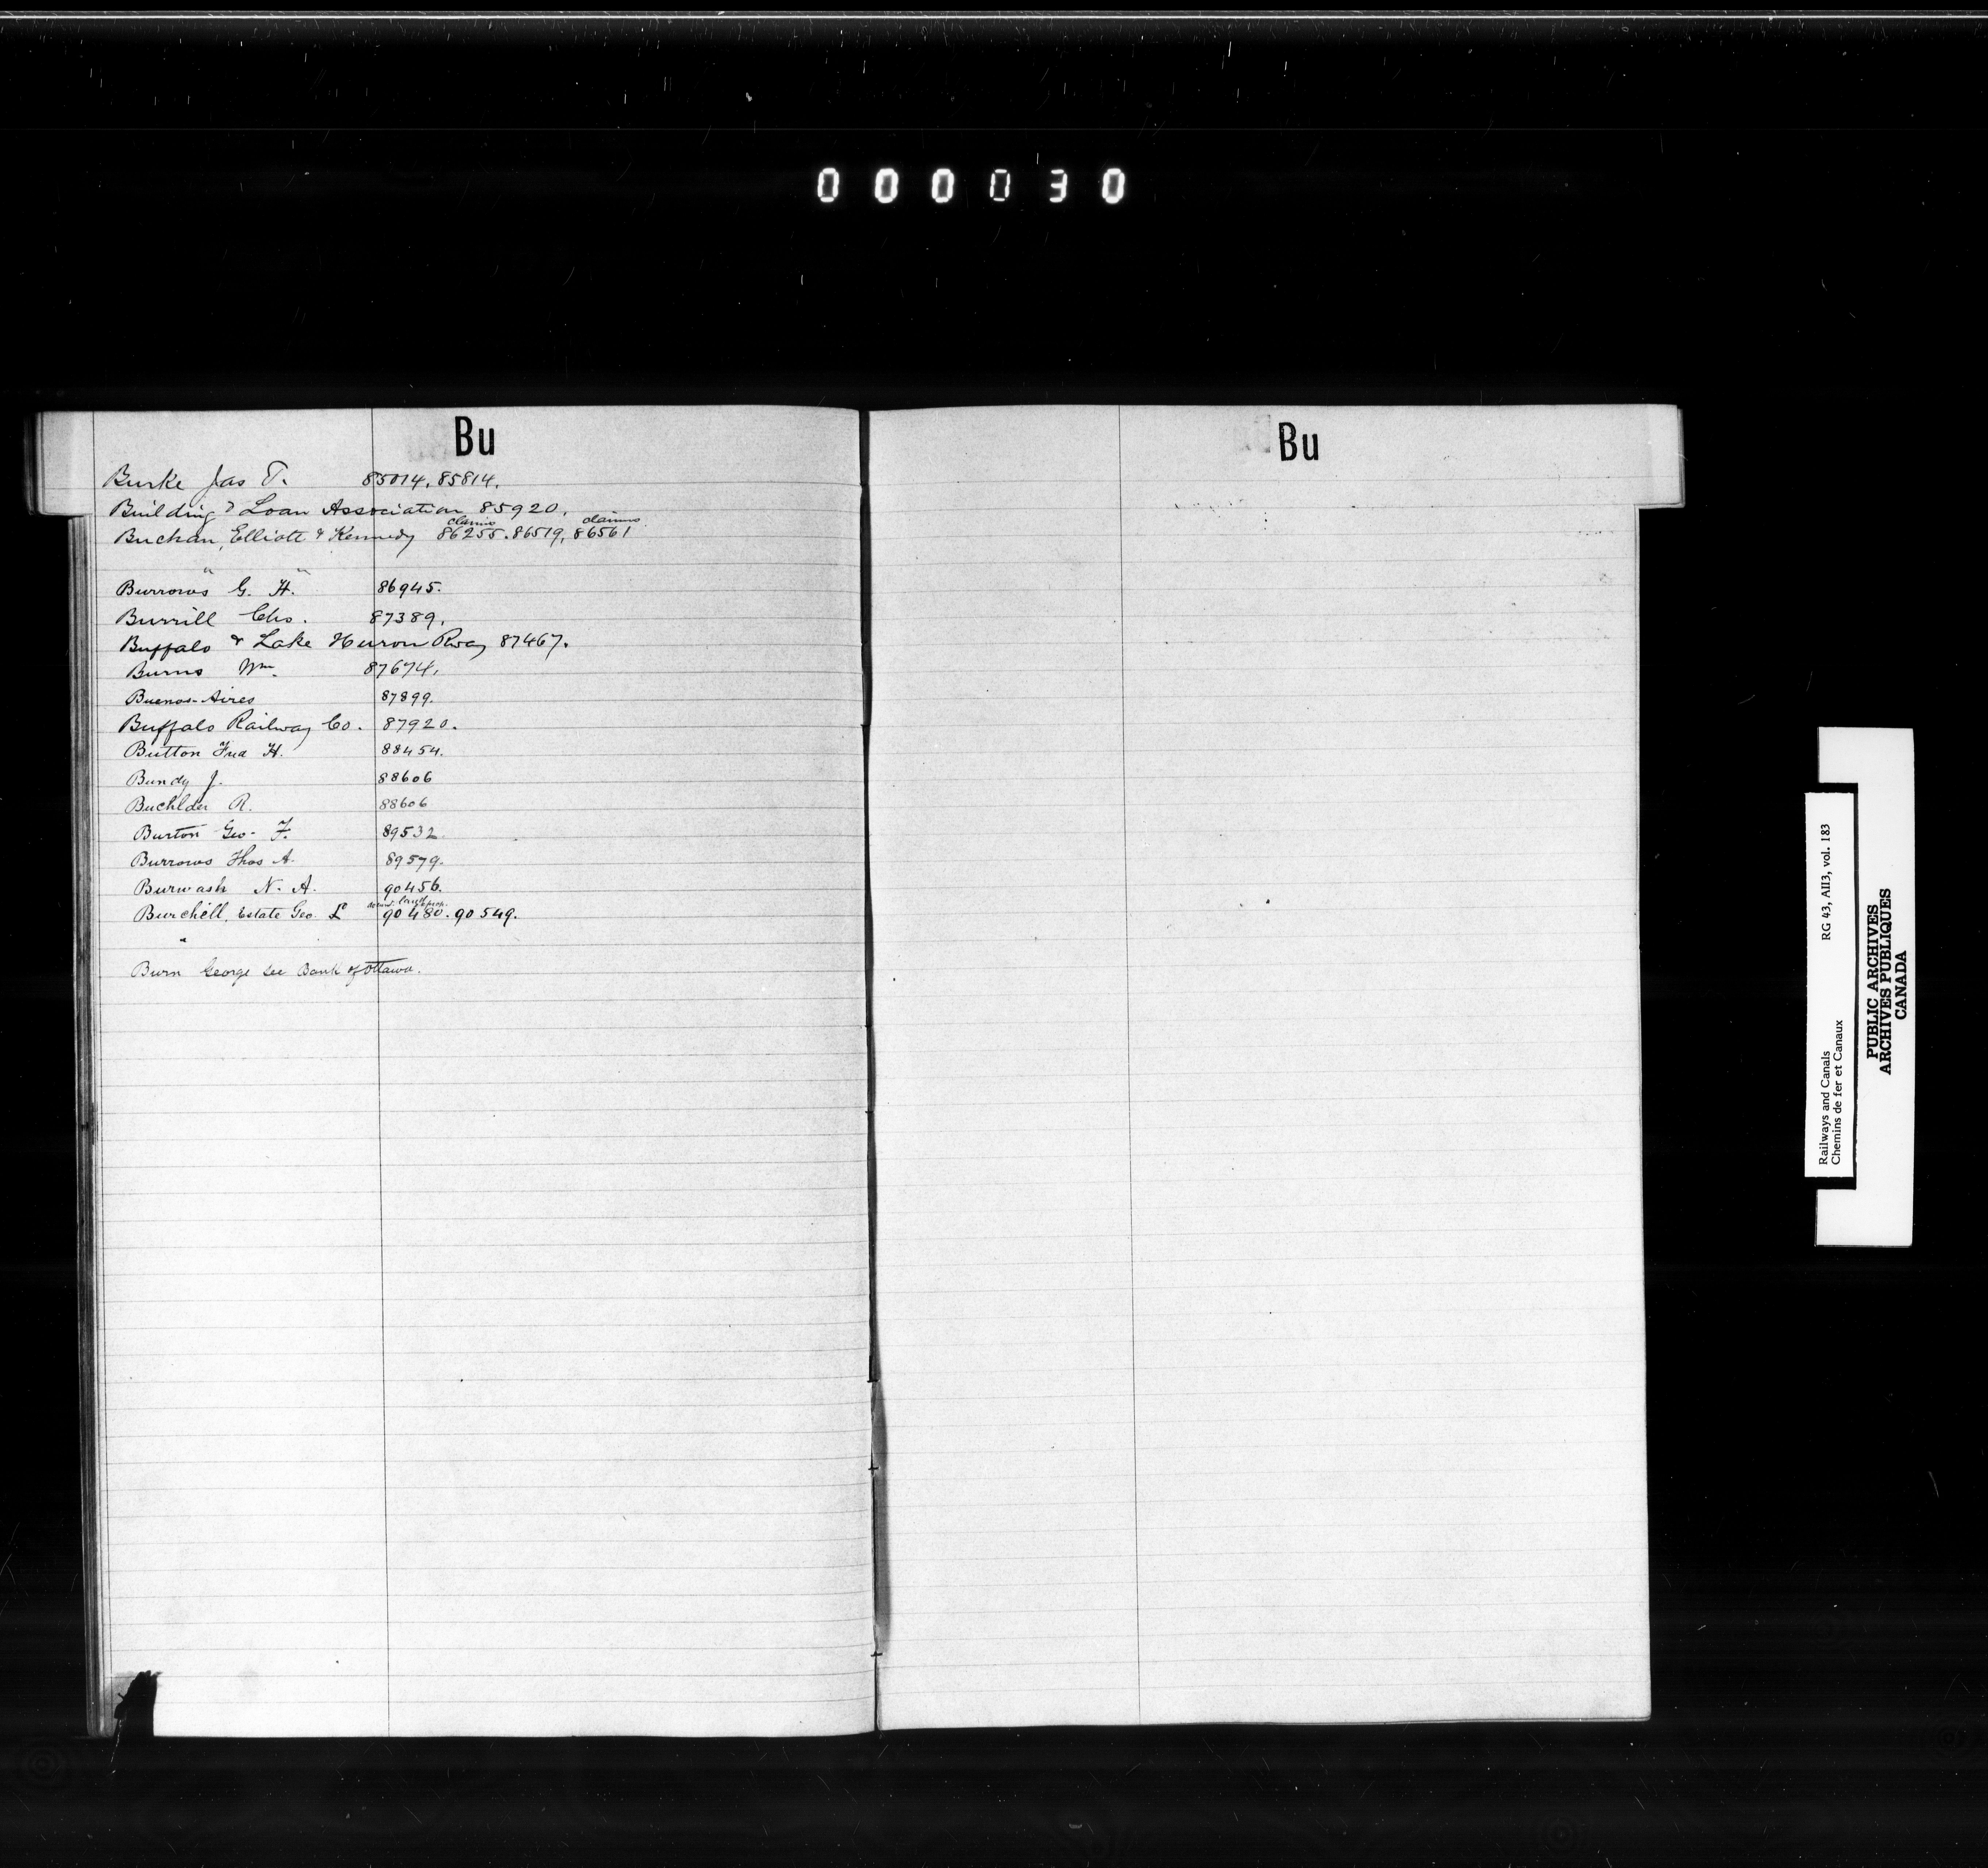 000030
Bu
Burke Jas T. 85014, 85814.
Building & Loan Association 85920.
claims claims
Buchan, Elliott & Kennedy 86255. 86519, 86561
" "
Burrows G. H. 86945.
Burrill Chs. 87389.
Buffalo & Lake Huron Rway 87467.
Burns Wm. 87674.
Buenos-Aires 87899.
Buffalo Railway Co. 87920.
Button Fred H. 88454.
Bundy J. 88606
Buchlder R. 88606
Burton Geo. F. 89532
Burrows Thos A. 89579.
Burwash N. A. 90456.
Burchell, Estate Geo. 90480. 90549.
"
Burn George see Bank of Ottawa.
Bu
Railways and Canals RG 43, AII3, vol. 183
Chemins de fer et Canaux
PUBLIC ARCHIVES
ARCHIVES PUBLIQUES
CANADA